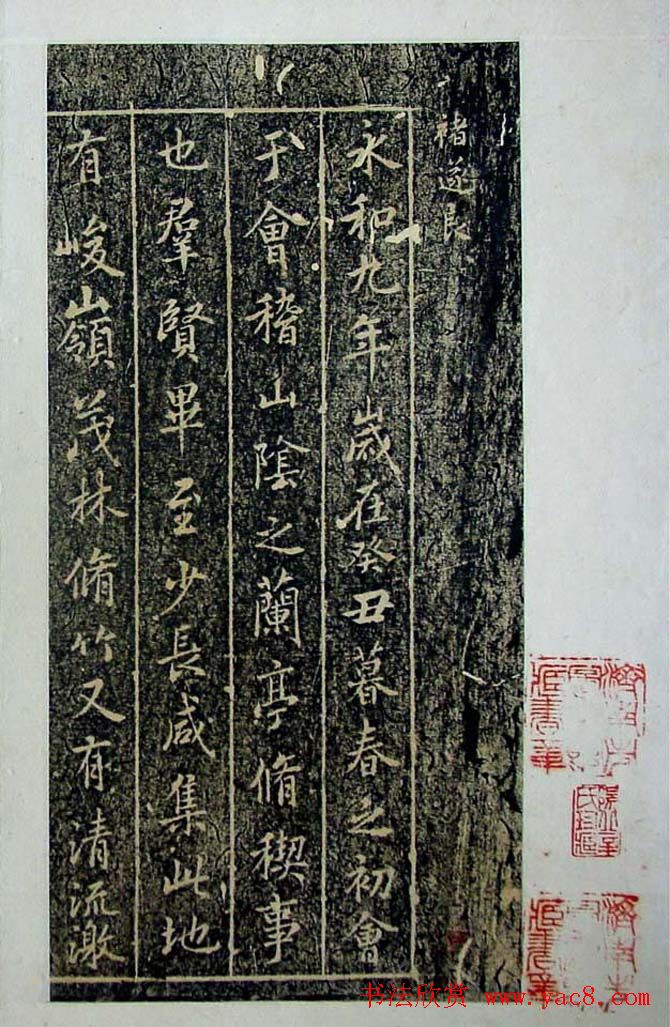 褚遂良
永和九年歲在癸丑暮春之初會
于會稽山陰之蘭亭脩稧事
也羣賢畢至少長咸集此地
有峻山嶺茂林脩竹又有清流激
书法欣赏 www.yac8.com